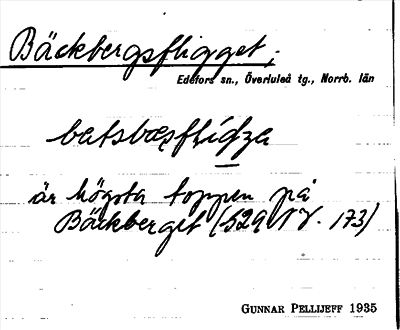 Bäckbergsfligget;
Edefors sn., Överluleå tg., Norrb. län
batsbæsflidza
är högsta toppen på
Bäckberget (S29 NV. 173)
GUNNAR PELLIJEFF 1935